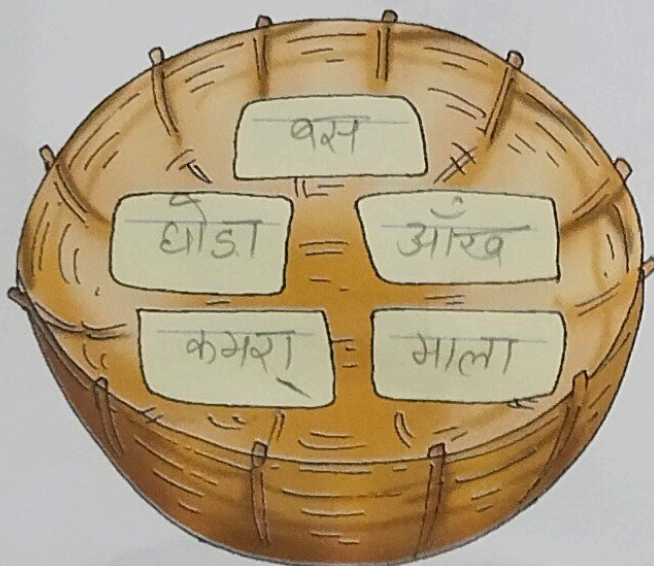 बस
घोडा
आँख
कमरा
माला